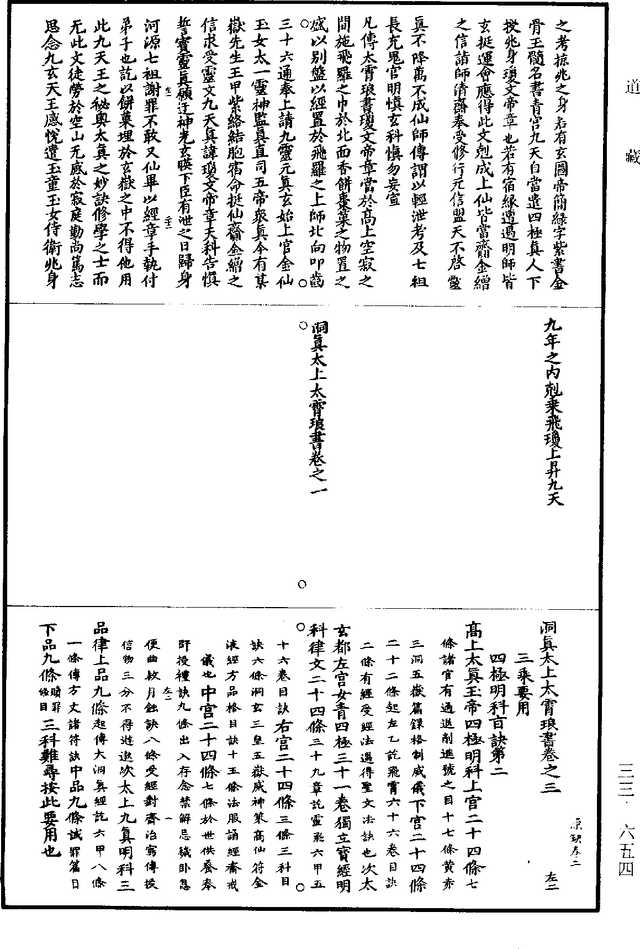 道藏
之考掠兆之身若有玄圖帝簡綠字紫書金
骨玉髓名書青宮九天自當遣四極真人下
授兆身瓊文帝章也若有宿緣遭遇明師皆
玄挺運會應得此文剋成上仙皆當齎金繒
之信詣師清齋奉受修行元信盟天不啓靈
真不降萬不成仙師傳謂以輕泄考及七祖
長充鬼官明慎玄科慎勿妄宣
凡傳太霄琅書瓊文帝章當於高上空寂之
間施飛羅之巾於北面香餅棗菓之物置之
盛以別盤以經置於飛羅之上師北向叩齒
三十六通奉上請九靈元真玄始上官金仙
玉女太一靈神監真直司五帝衆真今有某
嶽先生王甲紫絡結胞宿命挺仙齎金繒之
信求受靈文九天真諱瓊文帝章天科告慎
誓寶靈真願迂神光玄暎下臣有泄之日歸身
河源七祖謝罪不敢又仙畢以經章手執付
弟子也訖以餅菓埋於玄嶽之中不得他用
此九天王之秘奧太真之妙訣修學之士而
无此文徒勞於空山无感於寂庭勤尚篤志
思念九玄天王感悅遣玉童玉女侍衛兆身
九年之內剋乘飛瓊上昇九天
洞真太上太霄琅書卷之一
洞真太上太霄琅書卷之三
左二
三乘要用
四極明科百訣第二
高上太真玉帝四極明科上宮二十四條七
條諸官有過退削進號之目十七條黃赤
三洞五嶽篇錄格制威儀下宮二十四條
二十二條起左乙訖飛霄六十六卷目訣
二條有經受經法遇得聖文法訣也次太
玄都左宮女青四極三十一卷獨立寶經明
科律文二十四條三十九章訖靈飛六甲五
十六卷目訣右宮二十四條三條三科目
訣六條洞玄三皇五嶽威神策高仙符金
液經方品格目訣十五條法服誦經齋戒
儀也中宮二十四條七條於世供養奉
師授禮訣九條出入存念禁解忌穢卧息
便曲教月蝕訣八條受經對齋治寫傳授
信物三分不得遊逸次太上九真明科三
品律上品九條起傳大洞真經訖六甲八條
一條傳方丈諸符訣中品九條誡罪篇目
下品九條贖罪條目三科難尋按此要用也
三三·六五四